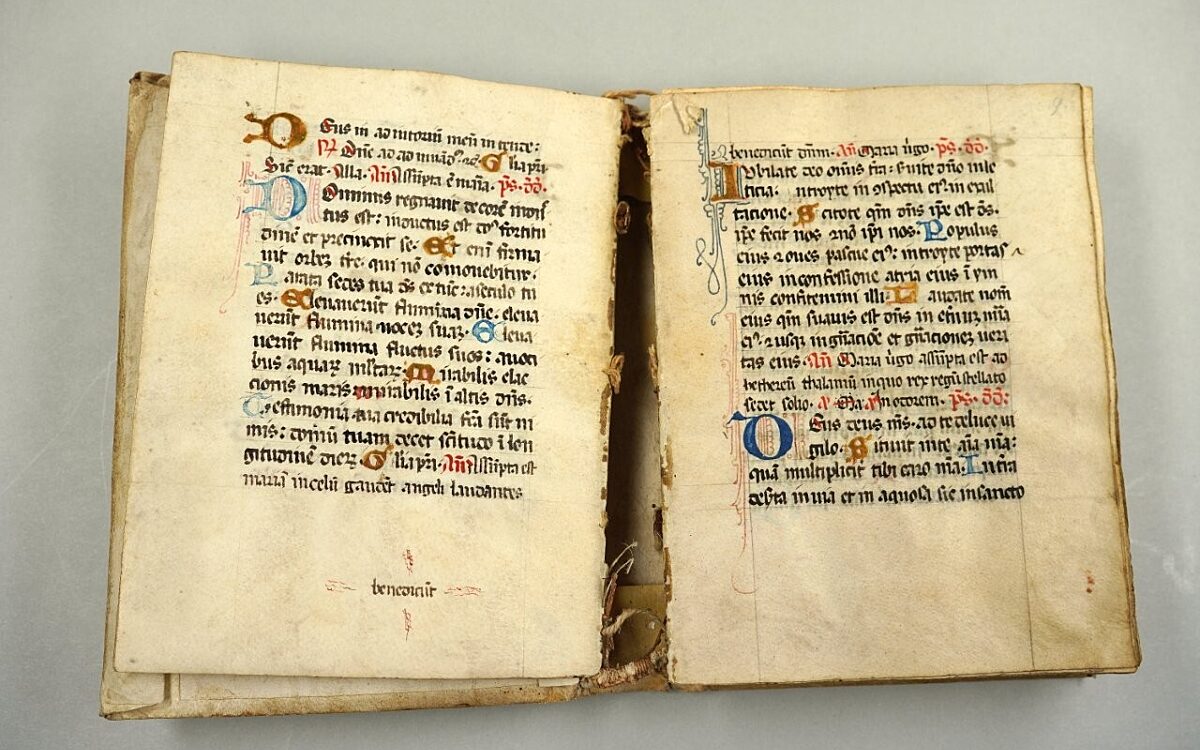 Deus in adiutoriũ meũ intende:
Dñe ad adiuuãdũ. Glia pri
Sic̃ erat. Alla. Añ Assũpta ẽ maria. ps. dd.
Dominus regnauit decorẽ indu
tus est: indutus est dñs fortitu
dinẽ et precinxit se. Et eni firma
uit orbeʒ tre: qui nõ comouebitur.
Parata sedes tua ds ex tũc: a seculo tu
es. Eleuauerũt flumina dñe: eleua
uerũt flumina uoceʒ suaʒ. Eleua
uerũt flumina fluctus suos: a uoci
bus aquaꝝ multaꝝ. Mirabilis elac
ciones maris mirabilis ĩ altis dñs.
Testimonia tua credibilia fcã sũt ni
mis: domũ tuam decet scitudo ĩ lon
gitudinẽ dierꝝ. Glia pri. Añ Assũpta est
maria in celũ gaudẽt angeli laudantes
benedicũt
benedicũt dñm. Añ Maria uigo. ps. dd.
Iubilate deo omis tra: seruite dño in le
ticia: introyte in ꝯspectu eiꝰ in exul
tacione. Scitote qm dñs ipe est ds.
ipe fecit nos ⁊ nõ ipi nos. Populus
eius ⁊ oues pascue eiꝰ: introyte portas
eius in confessione atria eius ĩ ym
nis confitemini illi. Laudate nom
eius qm suauis est dñs in etnũ mĩa
eiꝰ ⁊ usqꝫ in gñacioẽ et gñacioneʒ ueri
tas eius. Añ Maria uigo assũpta est ad
hethereũ thalamũ in quo rex regũ stellato
sedet solio. In odorem. ps. dd:
Deus deus ms. ad te de luce ui
gilo. Sitiuit in te aĩa mea:
quã multiplicit tibi caro mea. In tra
deserta in uia et in aquosa sic in sancto